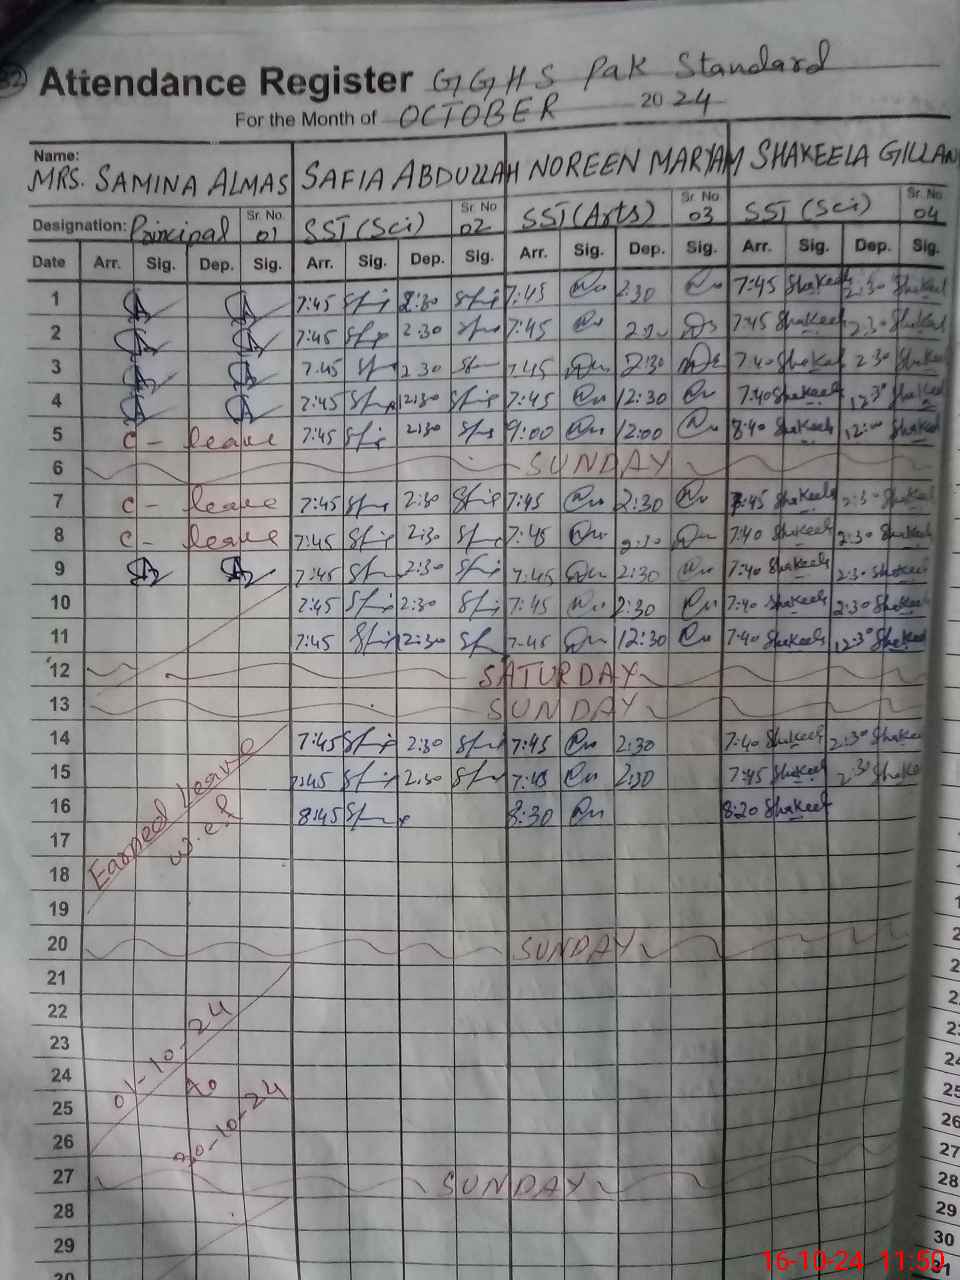 32 Attendance Register GGHS Pak Standard
For the Month of OCTOBER 2024
Name: MRS. SAMINA ALMAS SAFIA ABDULLAH NOREEN MARYAM SHAKEELA GILLAN
Designation: Principal Sr. No. 01 SST (Sci) Sr. No. 02 SST (Arts) Sr. No. 03 SST (Sci) Sr. No. 04
Date Arr. Sig. Dep. Sig. Arr. Sig. Dep. Sig. Arr. Sig. Dep. Sig. Arr. Sig. Dep. Sig.
1 7:45 2:30 7:45 2:30 7:45 Shakeela 2:30 Shakeel
2 7:45 2:30 7:45 7:45 Shakeel 2:30 Shakeel
3 7:45 2:30 7:45 2:30 7:40 Shakeel 2:30 Shakeel
4 7:45 12:30 7:45 12:30 7:40 Shakeel 12:30 Shakeel
5 C - leave 7:45 2:30 9:00 12:00 8:40 Shakeel 12:00 Shakeel
6 SUNDAY
7 C - leave 7:45 2:30 7:45 2:30 7:45 Shakeel 2:30 Shakeel
8 C - leave 7:45 2:30 7:45 2:30 7:40 Shakeel 2:30 Shakeel
9 7:45 2:30 7:45 2:30 7:40 Shakeel 2:30 Shakeel
10 7:45 2:30 7:45 2:30 7:40 Shakeel 2:30 Shakeel
11 7:45 2:30 7:45 12:30 7:40 Shakeel 12:30 Shakeel
12 SATURDAY
13 SUNDAY
14 7:45 2:30 7:45 2:30 7:40 Shakeel 2:30 Shakeel
15 7:45 2:30 7:45 2:30 7:45 Shakeel 2:30 Shakee
16 8:45 8:30 8:20 Shakeel
17
Earned Leave
w.e.f
18
19
20 SUNDAY
21
22
23
01-10-24
24
to
25
30-10-24
26
27 SUNDAY
28
29
30
24
25
26
27
28
29
30
31
16-10-24 11:50